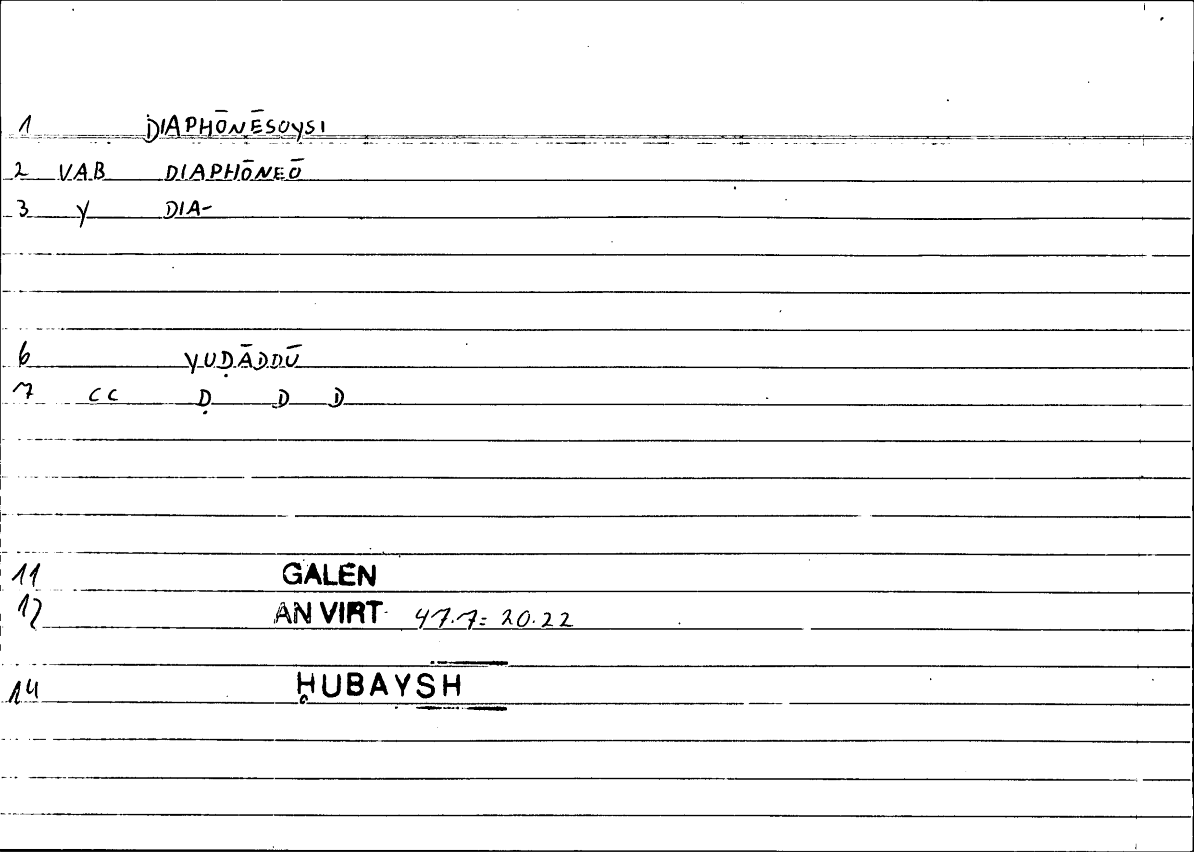 1 DIAPHŌNĒSOYSI
2 VAB DIAPHŌNEŌ
3 Y DIA-
6 YUḌĀDDŪ
7 CC Ḍ D D
11 GALEN
12 AN VIRT 47.7= 20.22
14 ḤUBAYSH